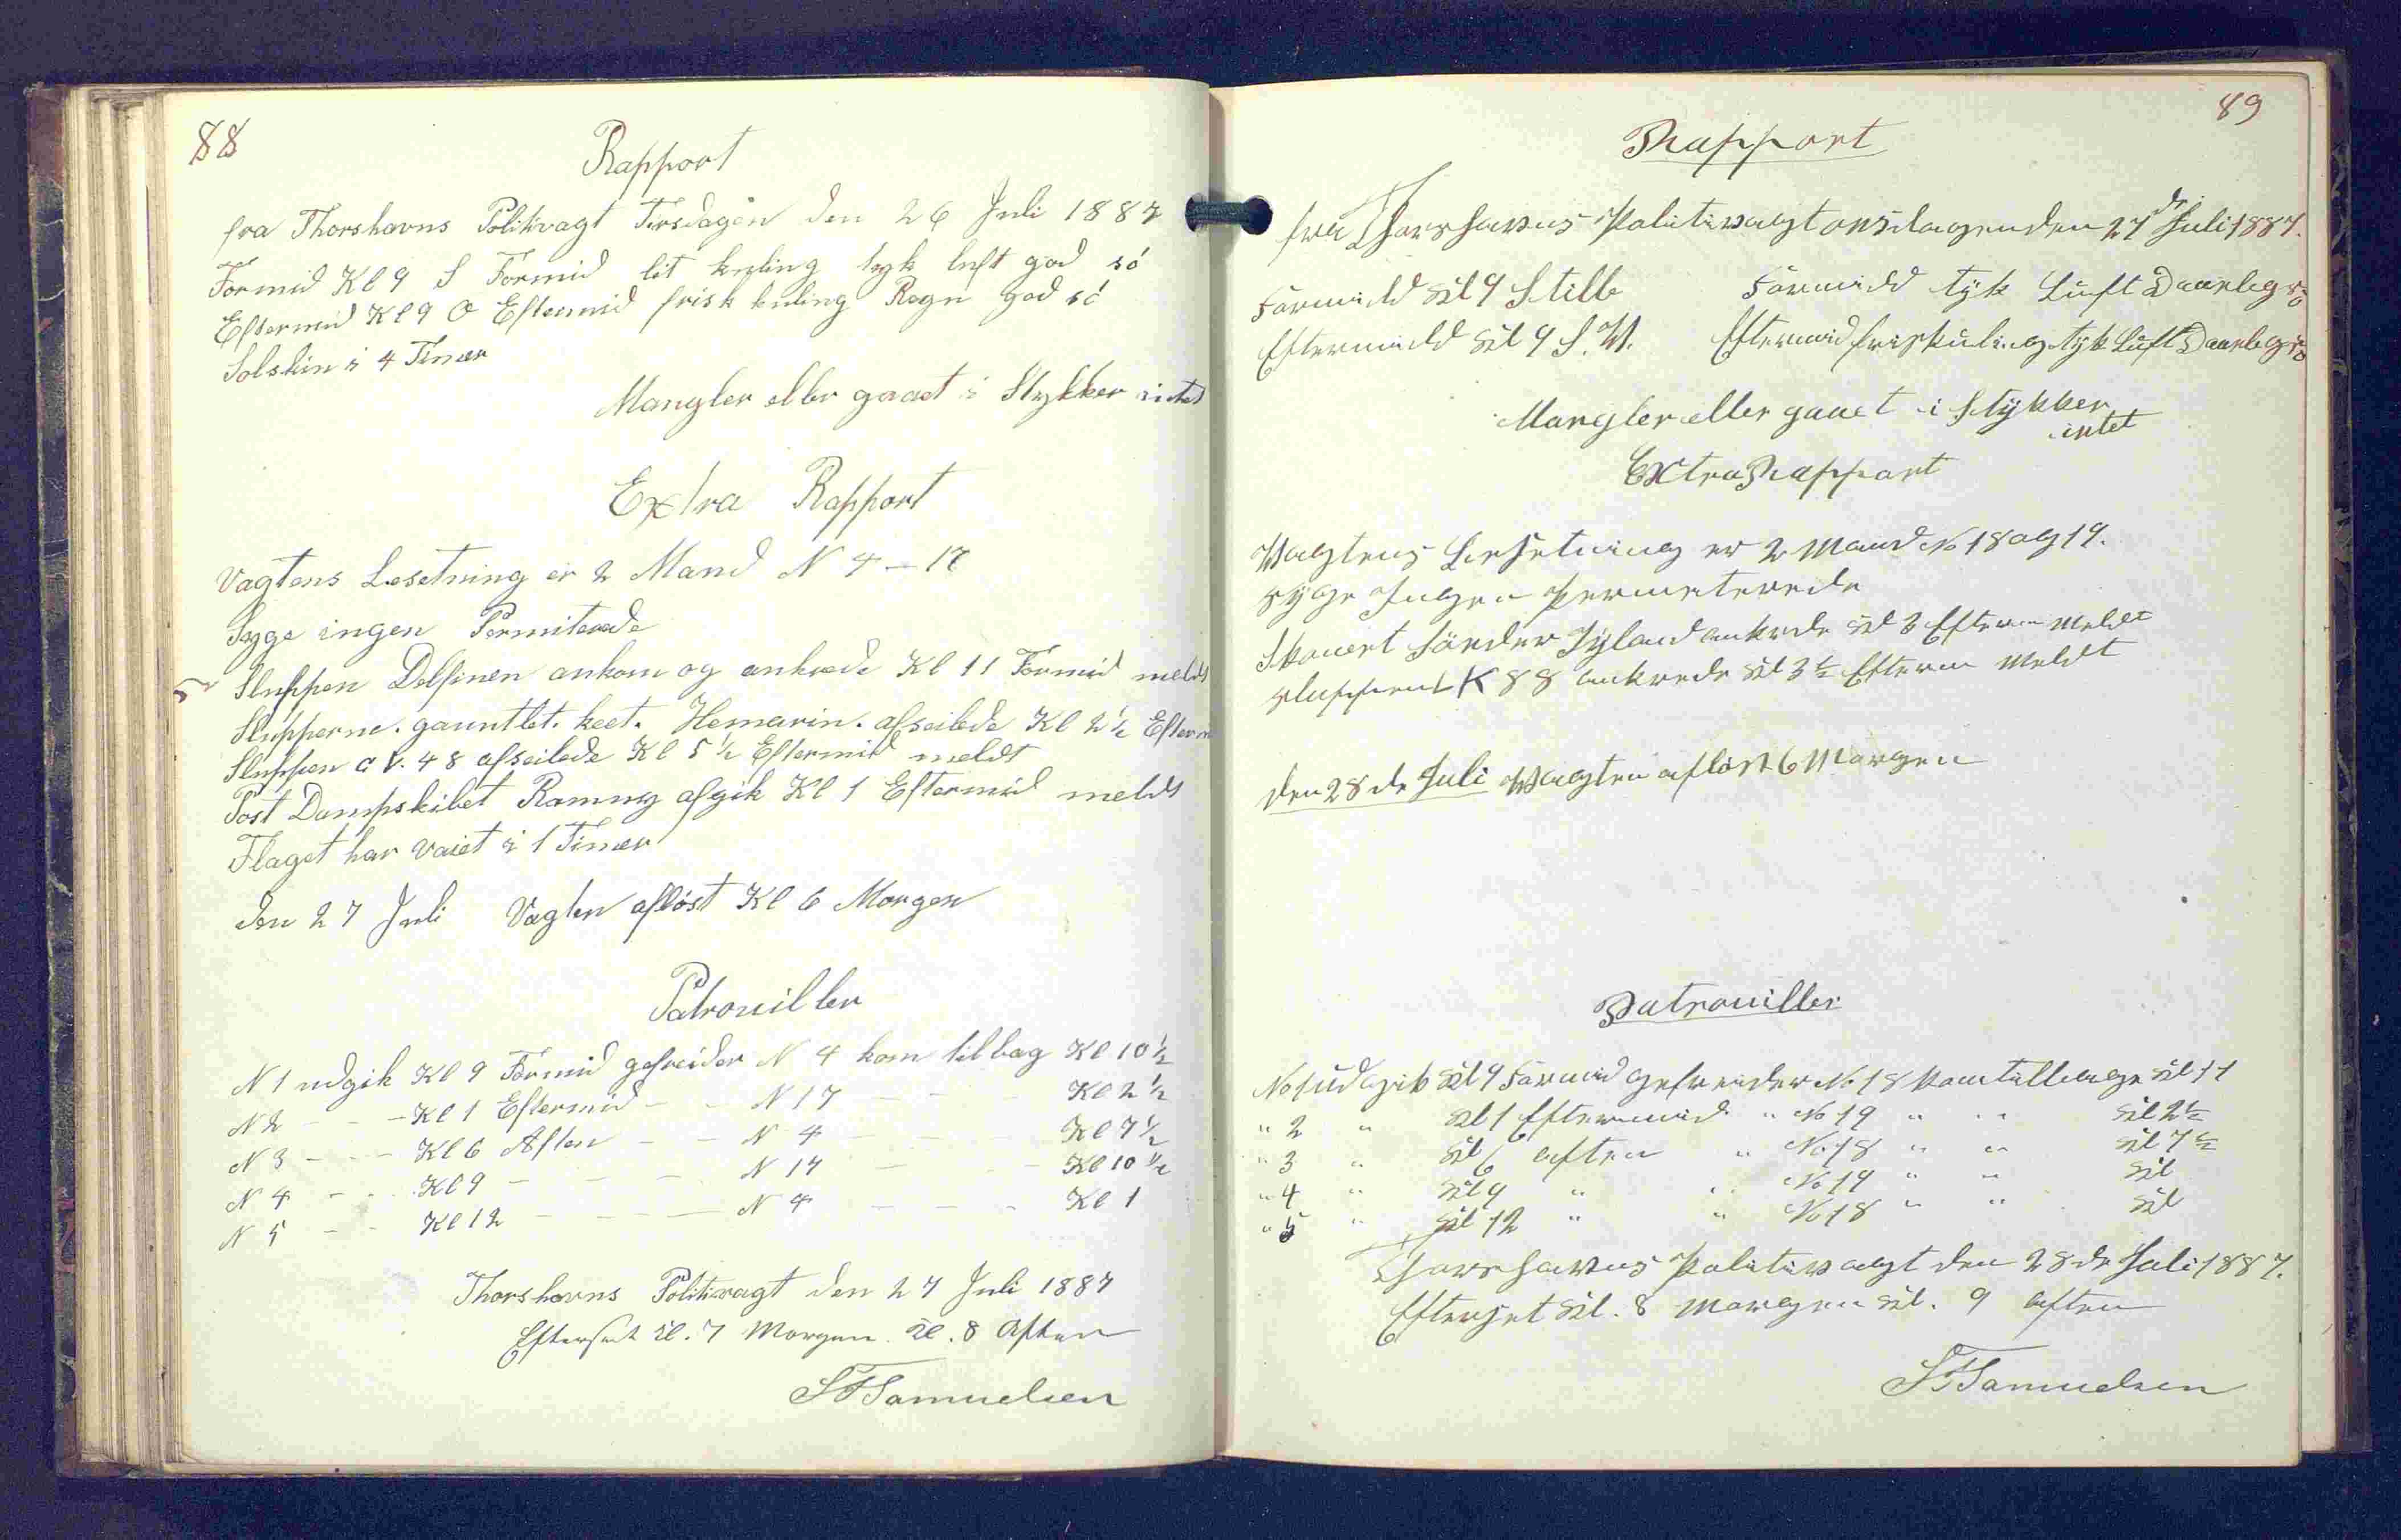 88
Rapport
fra Thorshavns Politivagt Tirsdagen den 26 Juli 1887
Formid Kl 9 S Formid lit kuling tyk luft god sö
Eftermid Kl 9 O Eftermid frisk kuling Regn god sö
Solskin i 4 Timer
Mangler eller gaaet i Stykker intet
Extra Rapport
Vagtens Besetning er 2 Mand N 4 – 17
Syge ingen Permiterede
Sluppen Delfinen ankom og ankrede Kl 11 Formid meldt
Slupperne. gauntlet. keet. Hemarin. afseilede Kl 2½ Efterm
Sluppen a V. 48 afseilede Kl 5½ Eftermid meldt
Post Dampskibet Romny afgik Kl 1 Eftermid meldt
Flaget har vaiet i 1 Timer
den 27 Juli Vagten aflöst Kl 6 Morgen
Patrouiller
N 1 udgik Kl 9 Formid gefreider N 4 kom tilbag Kl 10½
N 2 - - - Kl 1 Eftermid - - N 17 - - - Kl 2½
N 3 - - - Kl 6 Aften - - N 4 - - - Kl 7½
N 4 - - - Kl 9 - - - N 17 - - - Kl 10½
N 5 - - Kl 12 - - - - N 4 - - - Kl 1
Thorshavns Politivagt den 27 Juli 1887
Efterset Kl. 7 Morgen. Kl. 8 Aften
Samuelsen
89
Rapport
fra Thorshavns Politivagt onsdagen den 27de Juli 1887.
Formidd Kl 9 Stille Formidd tyk Luft Daarlig sö
Eftermidd Kl 9 S. V. Eftermid friskuling tyk Luft Daarlig sö
Mangler eller gaaet i Stykker
intet
Extra Rapport
Vagtens Besetning er 2 Mand No 18 og 19.
syge Ingen Permiterede
Skonert Sönder Jyland ankrede Kl 3 Efterm Meldt
sluppen L K 88 ankrede Kl 3½ Efterm Meldt
den 28 de Juli Vagten aflöst 6 Morgen
Patrouiller
No 1 udgik Kl 9 Formid gefreider No 18 kom tilbage Kl 11
" 2 " Kl 1 Eftermid " No 19 " " Kl 2½
" 3 " Kl 6 aften " No 18 " " Kl 7½
" 4 " Kl 9 " " No 19 " " Kl
" 5 " Kl 12 " " No 18 " " Kl
Thorshavns Politivagt den 28 de Juli 1887.
Efterset Kl. 8 Morgen Kl. 9 aften
Samuelsen